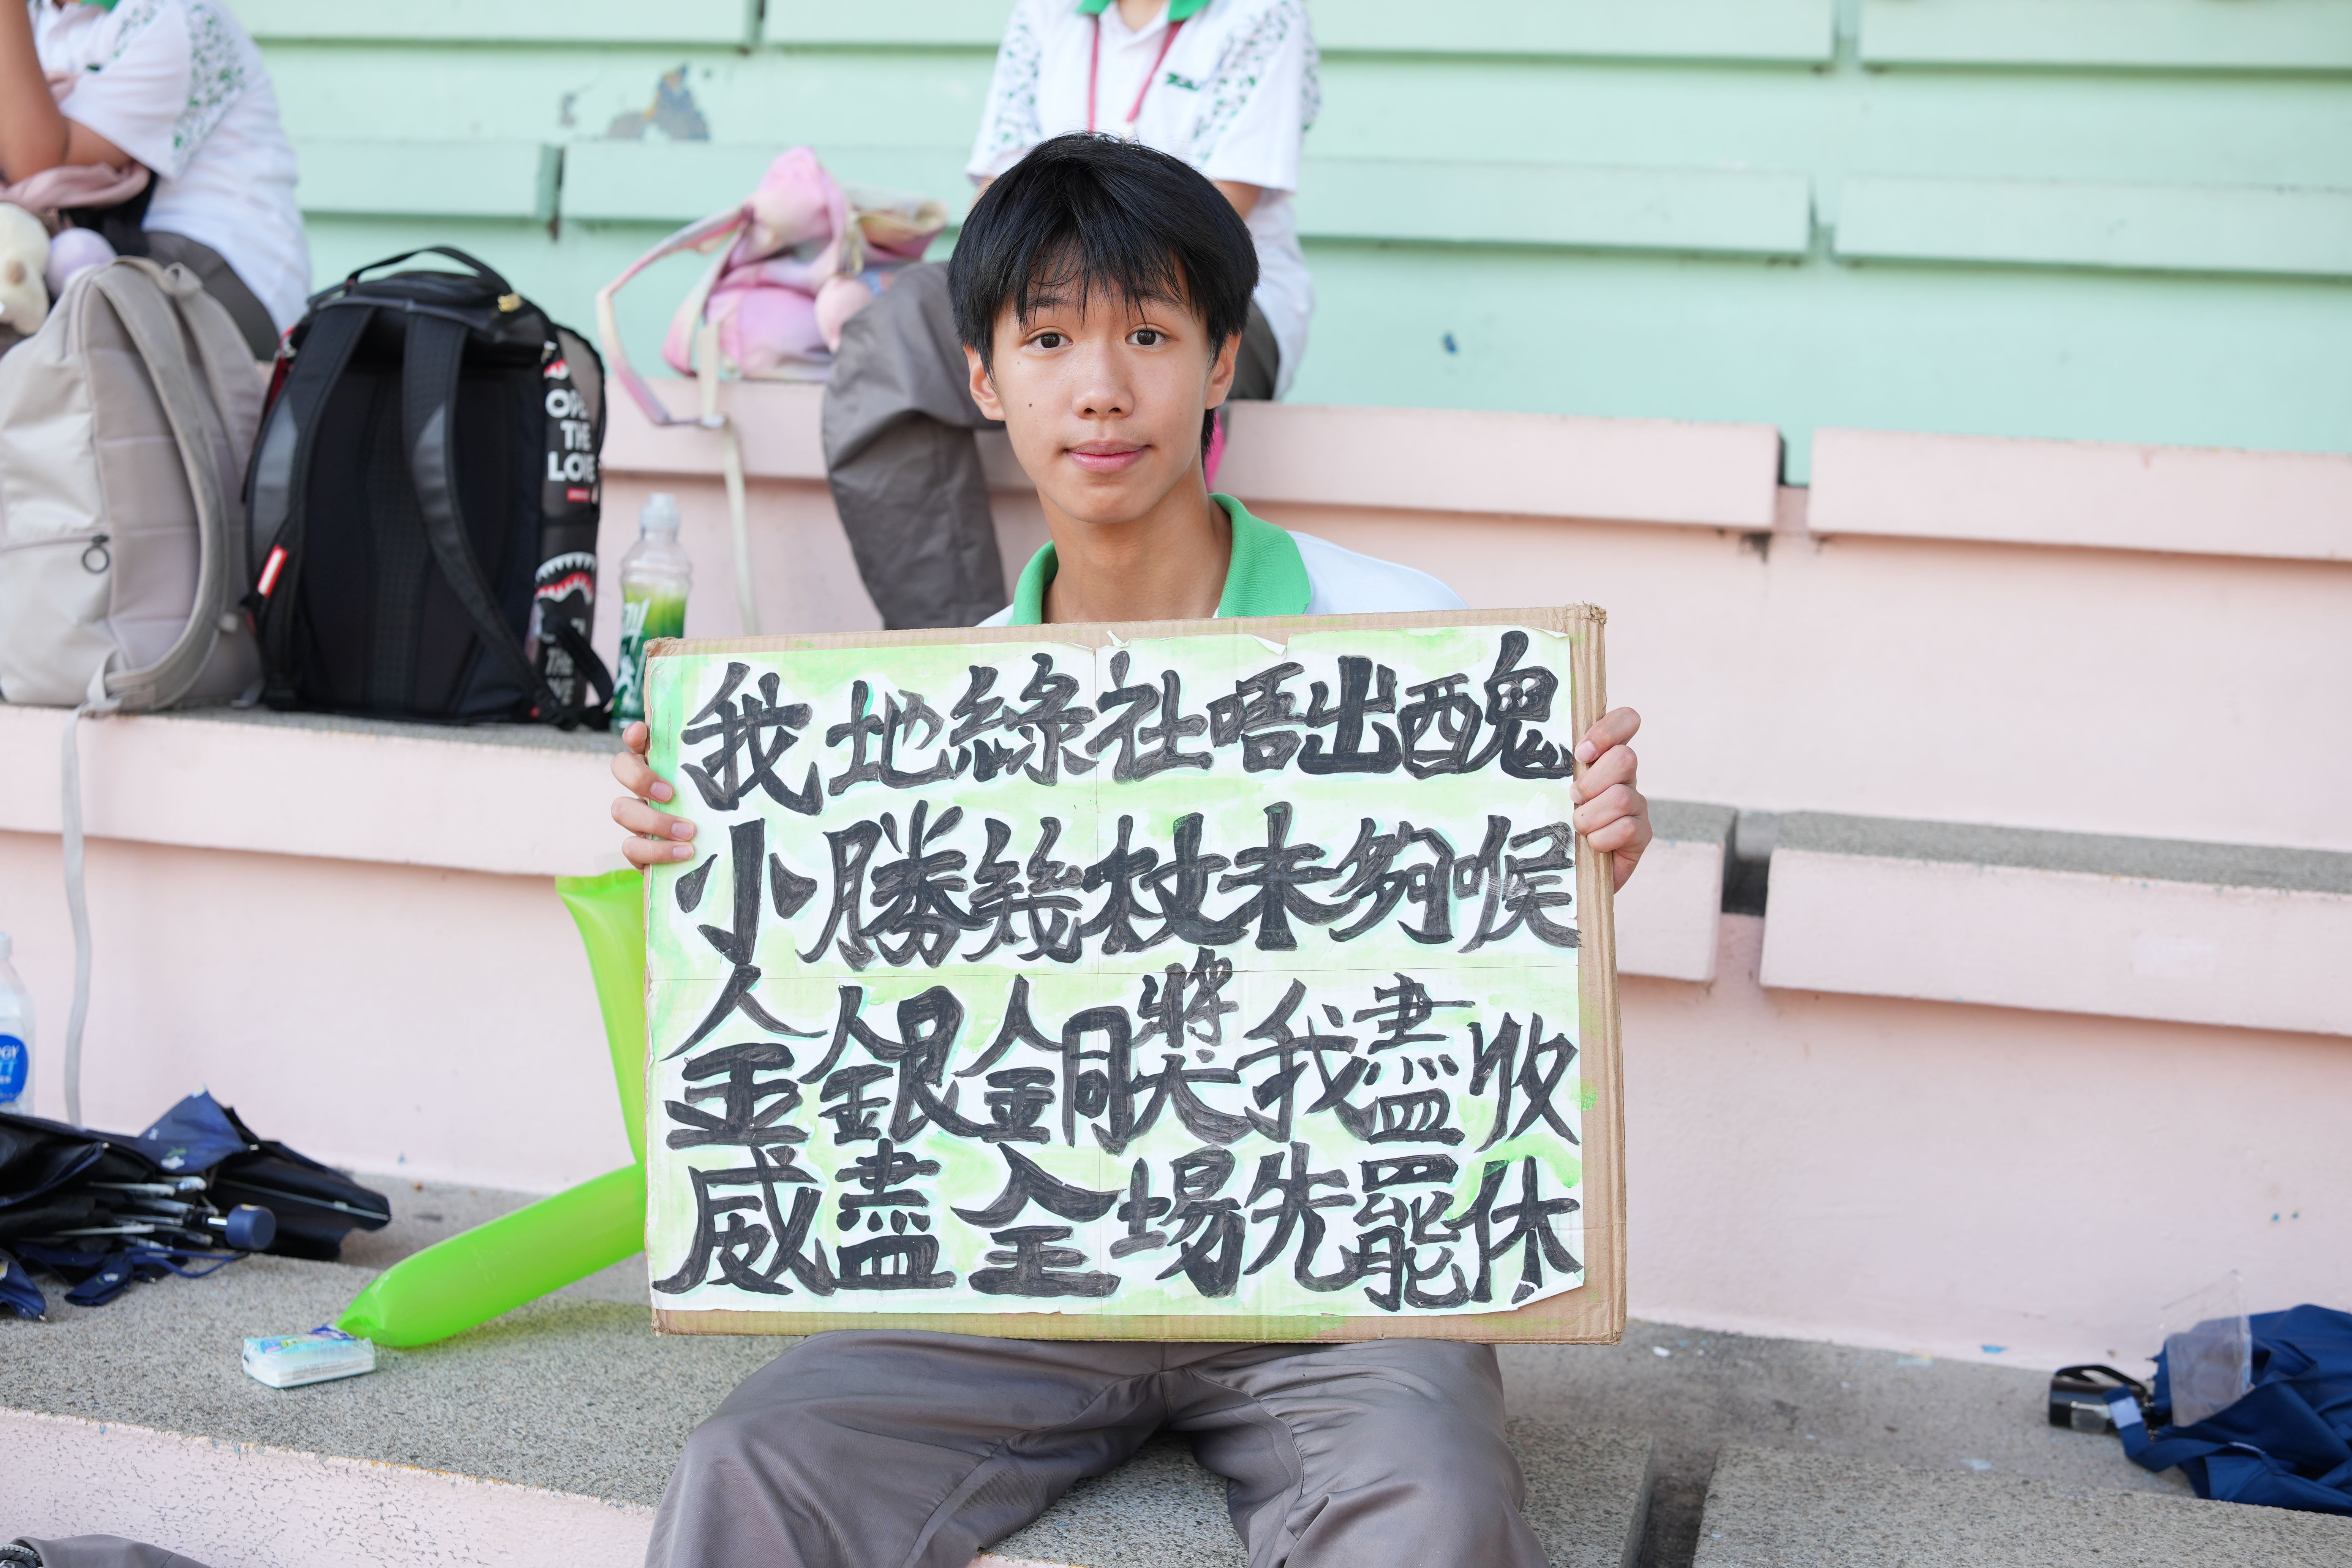 我地綠社唔出醜
小勝幾杖未夠喉
金銀銅獎我盡收
威盡全場先罷休
OPE
THE
LOB